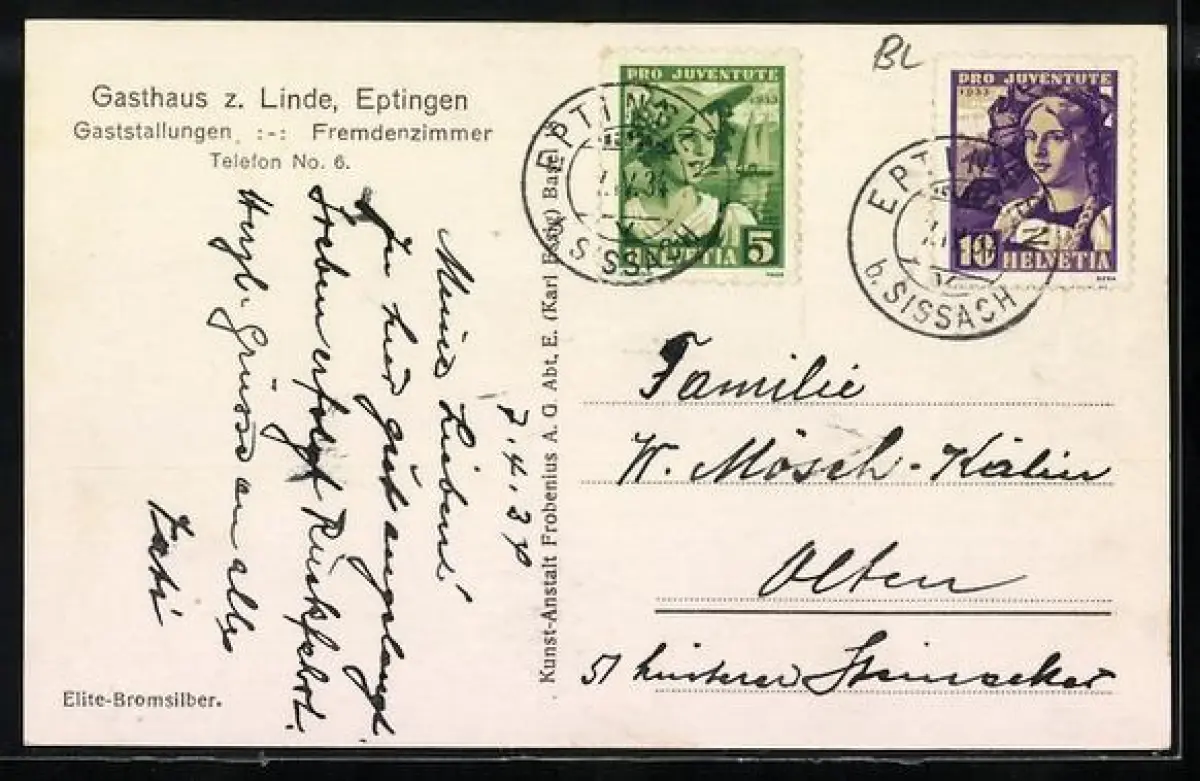 Gasthaus z. Linde, Eptingen
Gaststallungen :-: Fremdenzimmer
Telefon No. 6.
7.4.34
Meine Lieben!
In hier gut angelangt
Soeben erfolgt Rückfahrt.
Herzl. Grüsse an alle
Kati
Elite-Bromsilber.
Kunst-Anstalt Frobenius A. G. Abt. E. (Karl Essig) Basel
BL
PRO JUVENTUTE
1933
5
HELVETIA
EPTINGEN
b. SISSACH
PRO JUVENTUTE
1933
10 HELVETIA
EPTINGEN
b. SISSACH
Familie
W. Mösch-Kälin
Olten
51 hinterer Steinacker